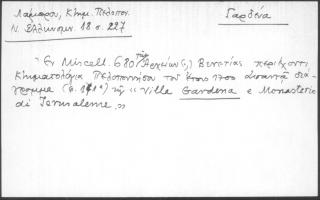 Λάμπρου, Κτημ. Πελοπον.
Ν. Ἑλληνομν. 18 σ. 227
Γαρδένα
"Ἐν Miscell. 680 τῶν Ἀρχείων (;) Βενετίας περιέχοντι
Κτηματολόγια Πελοποννήσου τοῦ ἔτους 1700 ἀπαντᾷ διά-
γραμμα τῆς "Villa Gardena e Monasterio
di Jerusaleme."